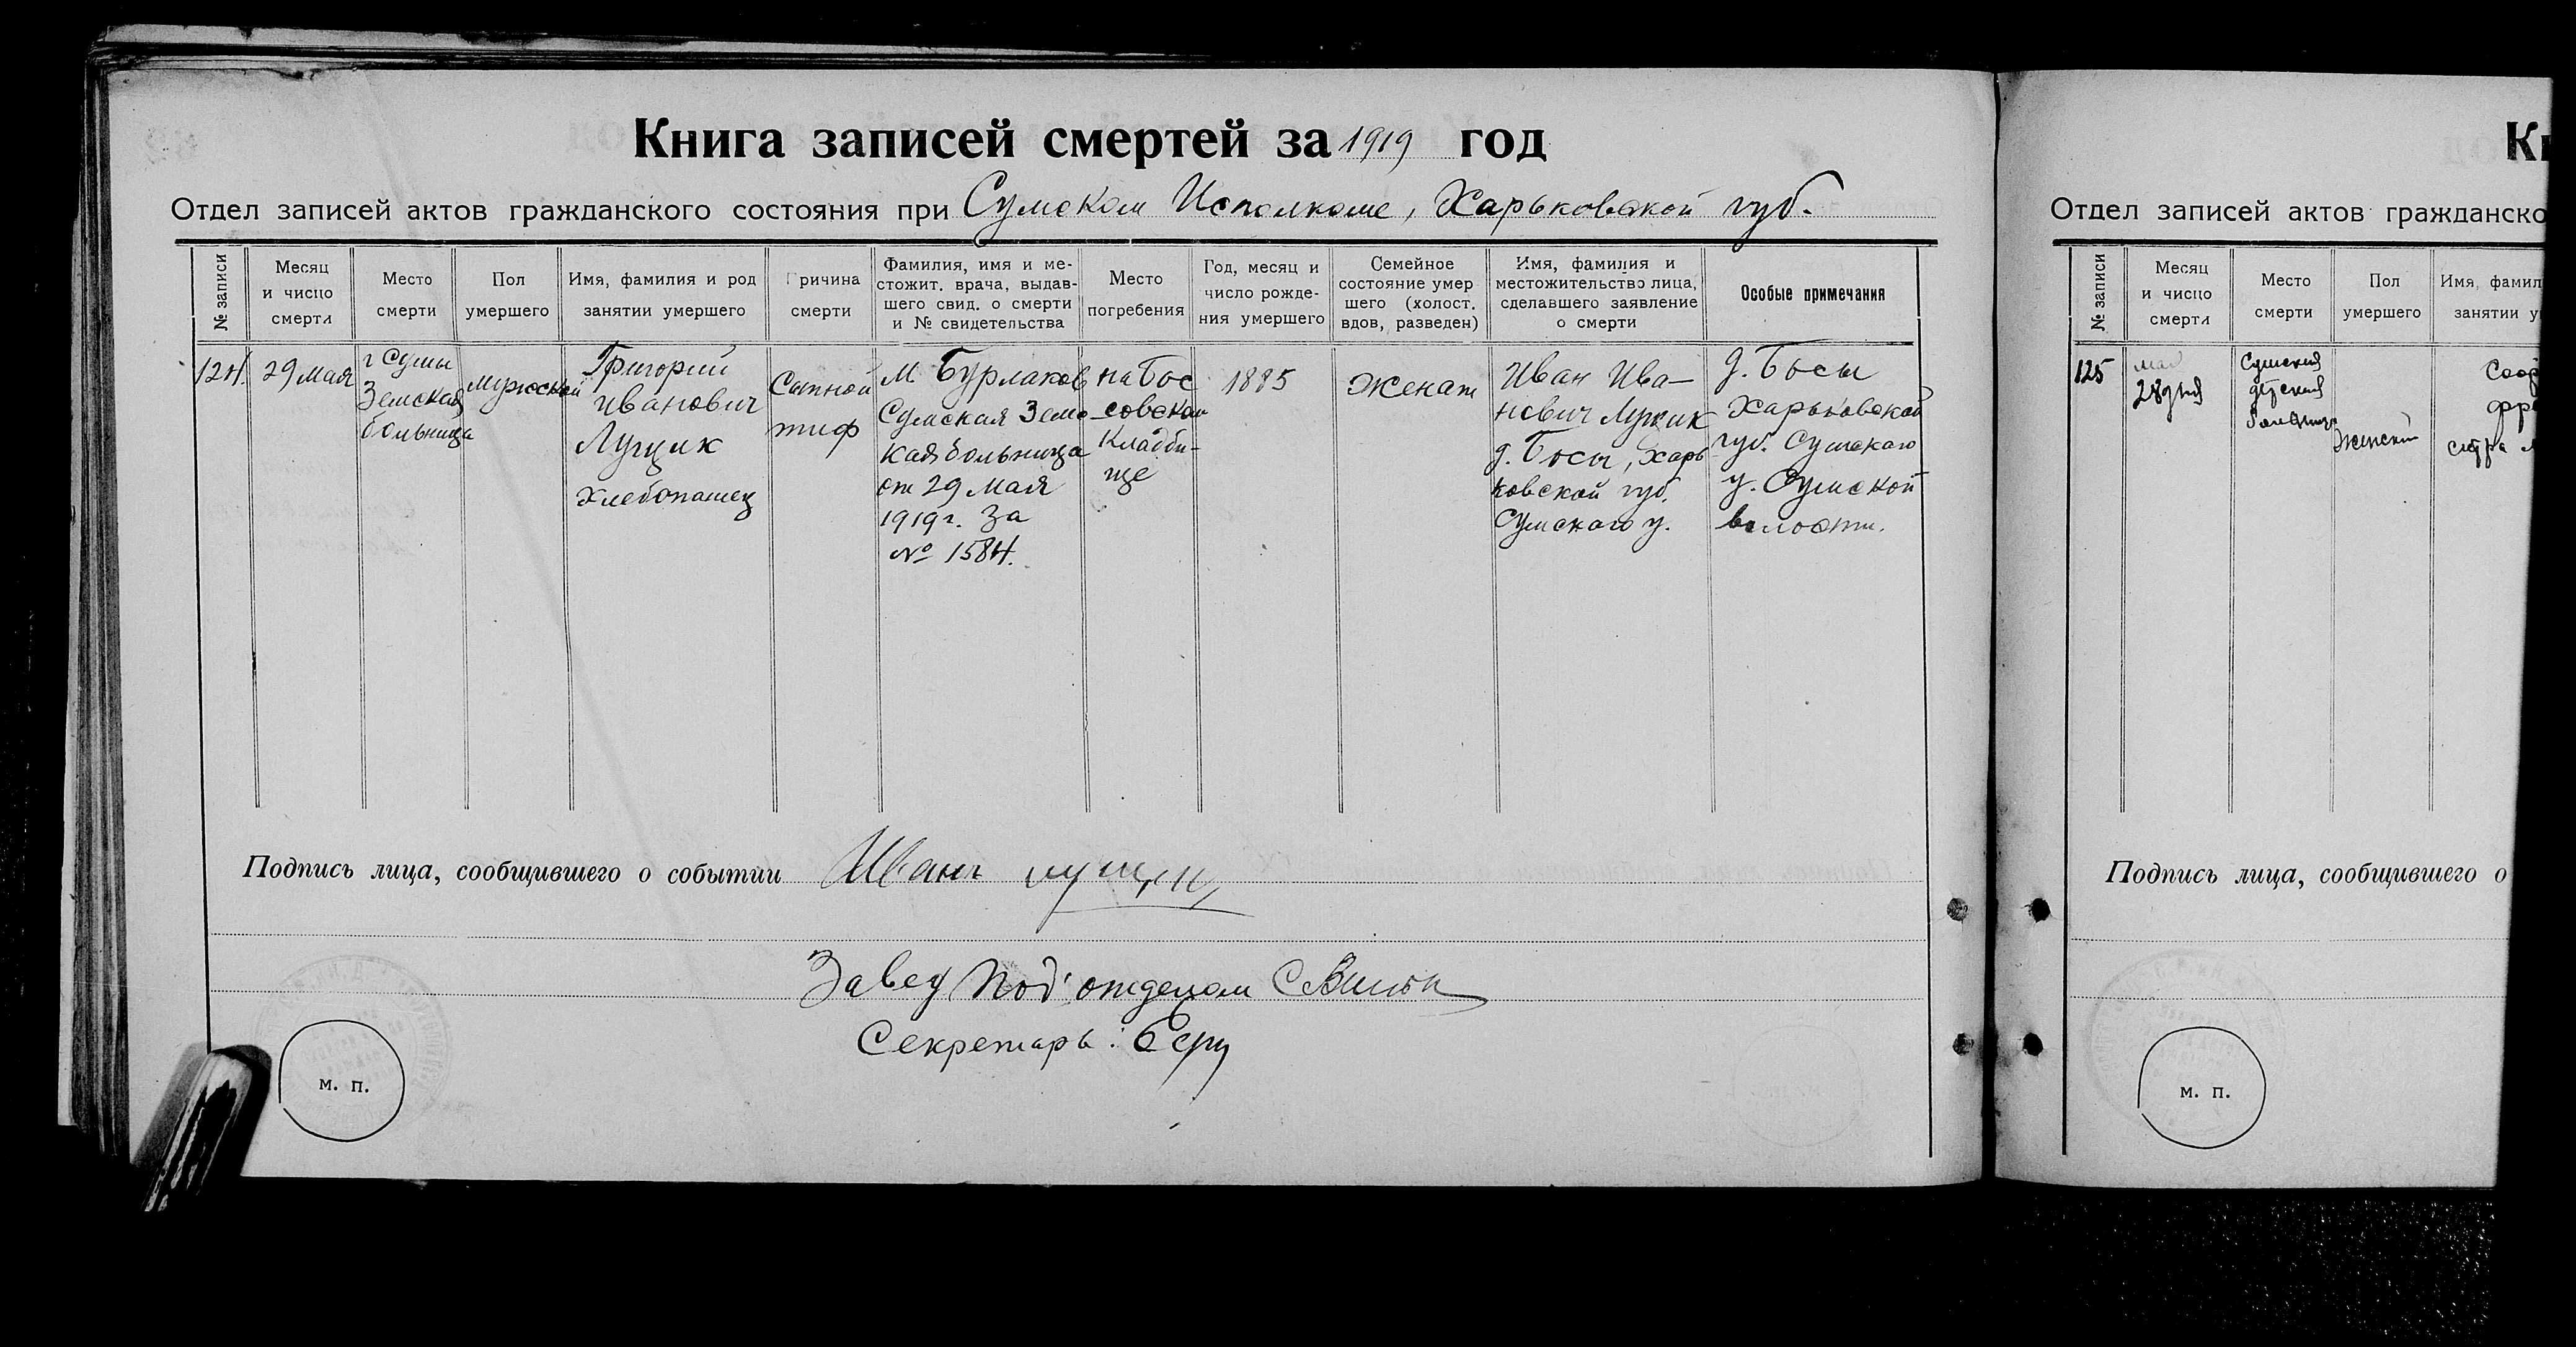 Книга записей смертей за 1919 год
Отдел записей актов гражданского состояния при Сумском Исполкоме, Харьковской губ.
№ записи
Месяц
и число
смерти
Место
смерти
Пол
умершего
Имя, фамилия и род
занятии умершего
Причина
смерти
Фамилия, имя и ме-
стожит. врача, выдав-
шего свид. о смерти
и № свидетельства
Место
погребения
Год, месяц и
число рожде-
ния умершего
Семейное
состояние умер
шего (холост.
вдов, разведен)
Имя, фамилия и
местожительство лица,
сделавшего заявление
о смерти
Особые примечания
124.
29 Мая
г Сумы
Земская
больница
мужской
Григорий
Иванович
Лущик
Хлебопашец
Сыпной
тиф
М Бурлаков
Сумская Земс
кая больница
от 29 Мая
1919 г. За
№ 1584.
на Бос
совском
Кладби-
ще
1885
Женат
Иван Ива-
нович Лущик
д. Босы, Харь
ковской губ.
Сумскаго у.
д. Босы
Харьковской
губ. Сумскаго
у. Сумской
волости.
Подпись лица, сообщившего о событии Иванъ
Завед Под'отделом
Секретарь:
м. п.
Кн
Отдел записей актов гражданско
№ записи
Месяц
и число
смерти
Место
смерти
Пол
умершего
Имя, фамил
занятии у
125
май
28 дня
Сумская
детская
больница
Женский
Подпись лица, сообщившего о
м. п.